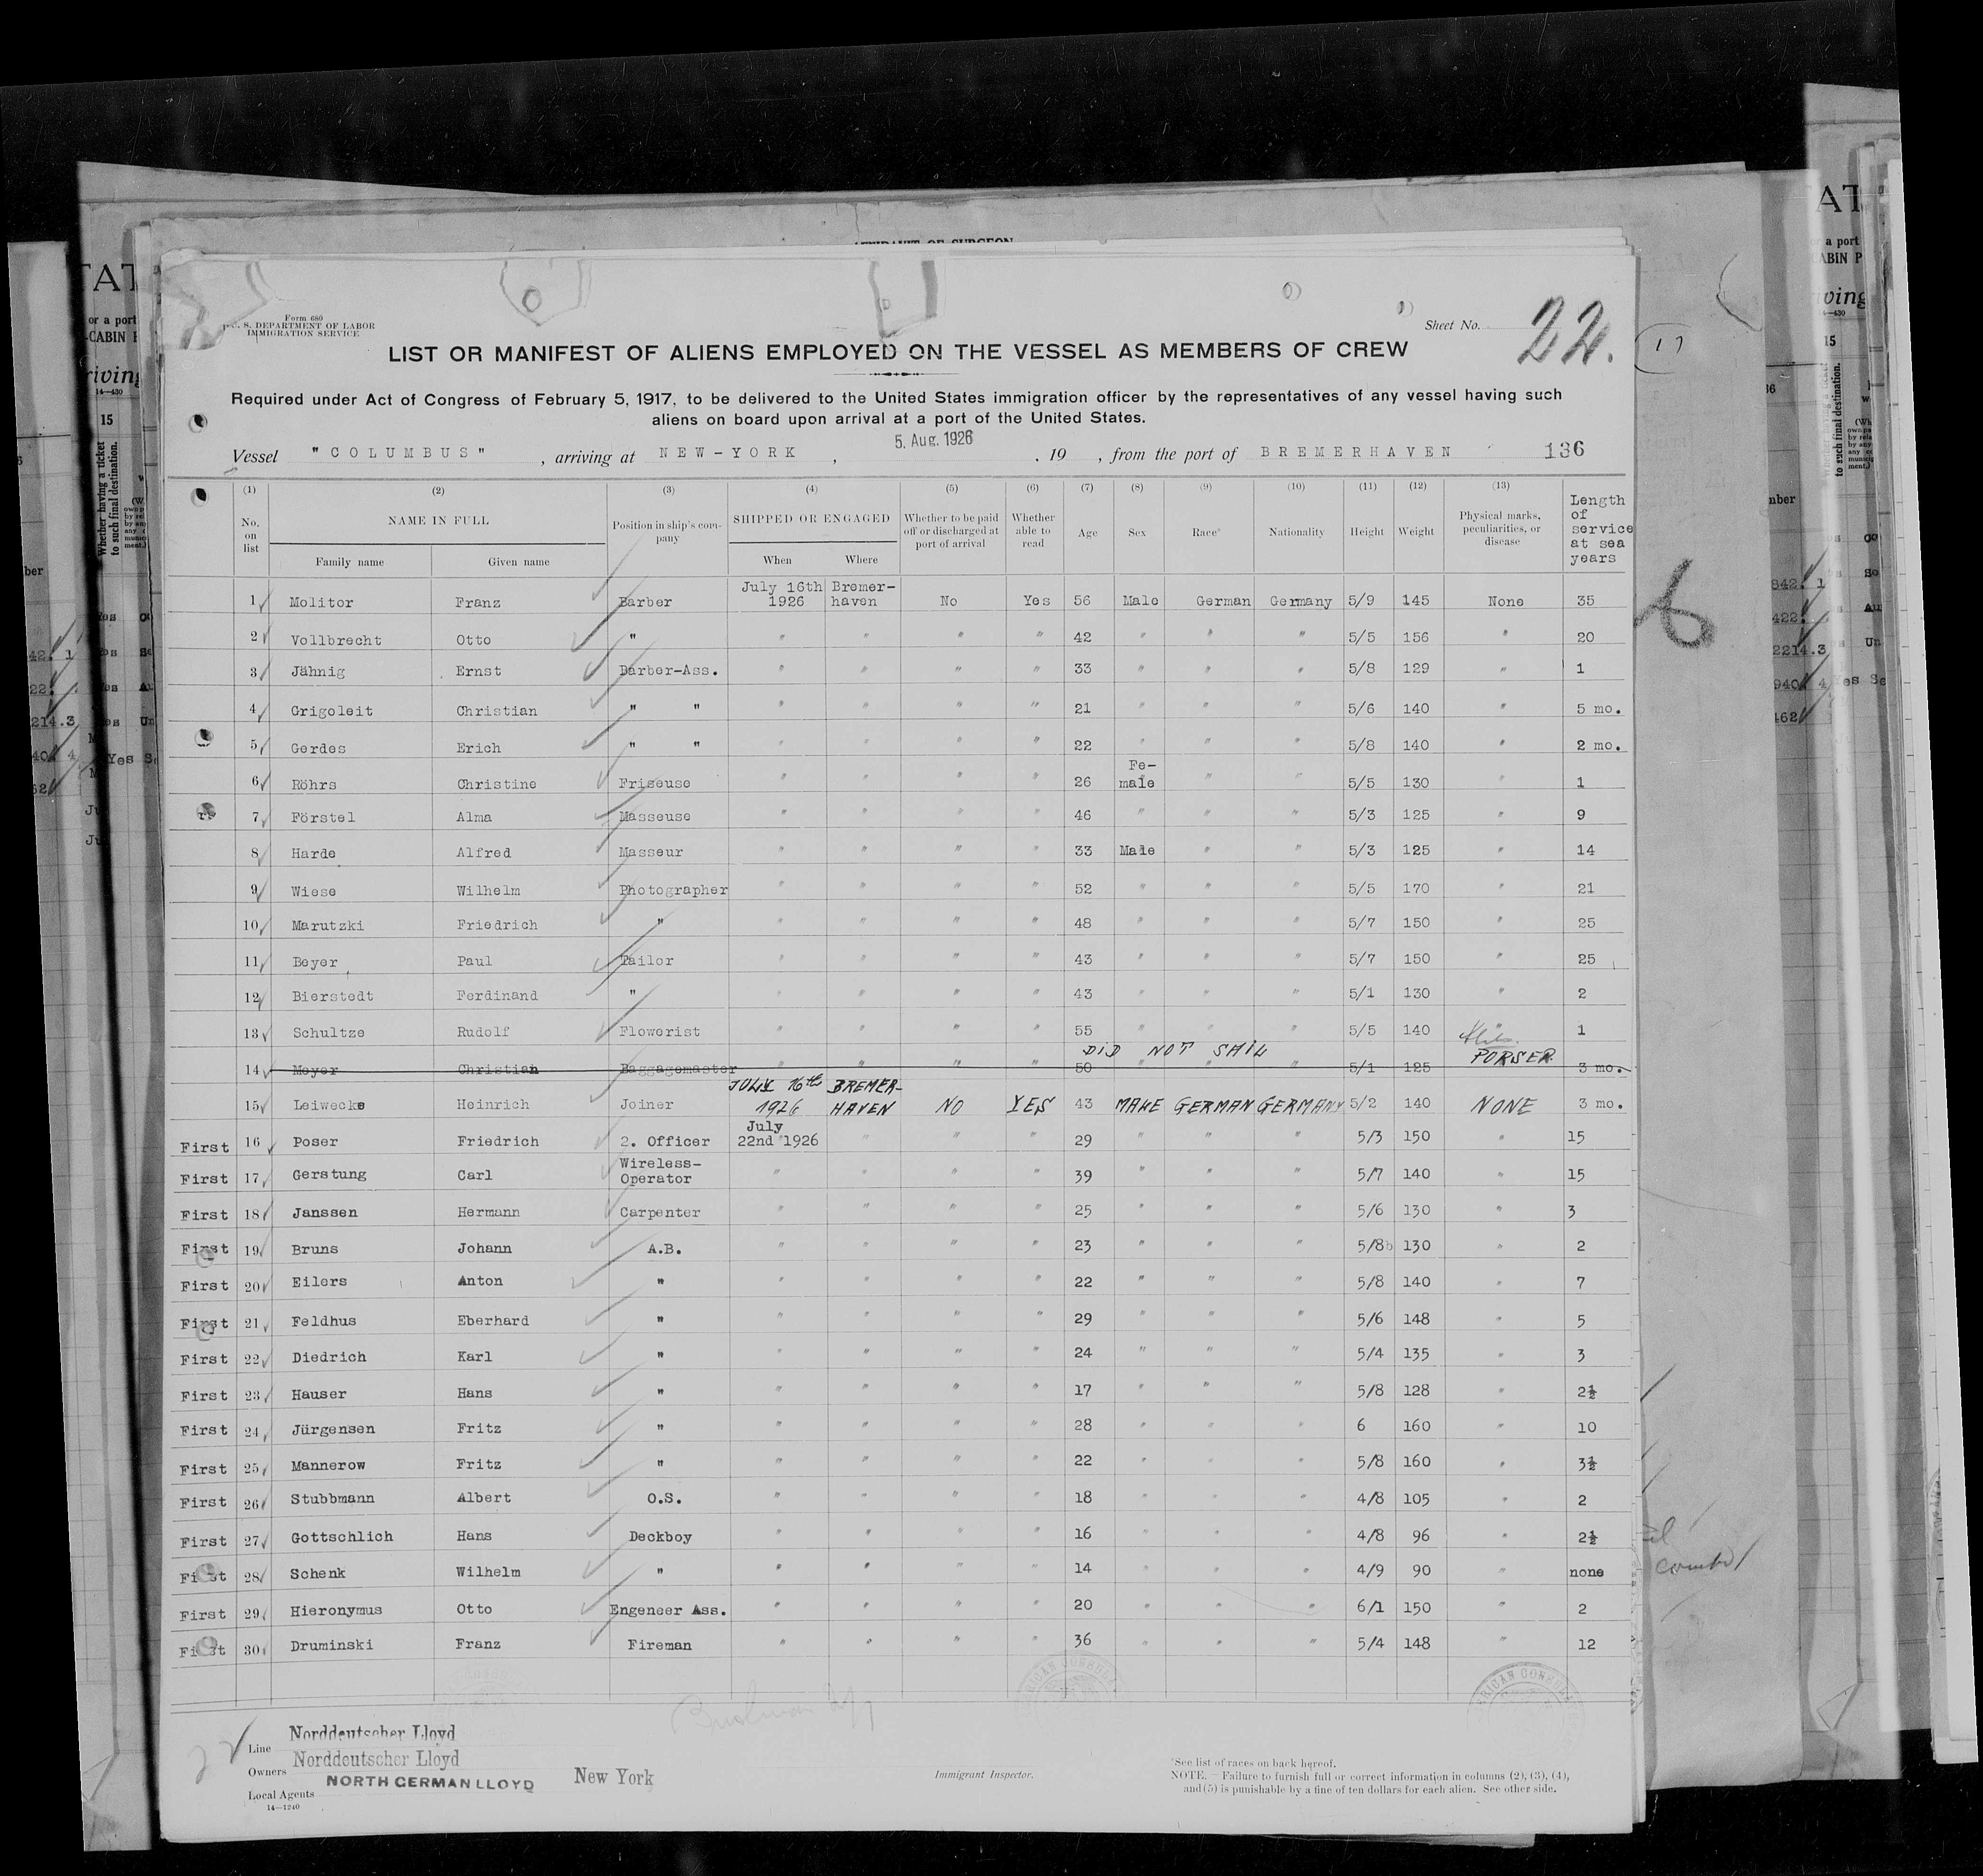 Form 680
U. S. DEPARTMENT OF LABOR
IMMIGRATION SERVICE
Sheet No. 22.
LIST OR MANIFEST OF ALIENS EMPLOYED ON THE VESSEL AS MEMBERS OF CREW
Required under Act of Congress of February 5, 1917, to be delivered to the United States immigration officer by the representatives of any vessel having such
aliens on board upon arrival at a port of the United States.
Vessel "COLUMBUS", arriving at NEW-YORK, 5. Aug. 1926, 19 , from the port of BREMERHAVEN 136
(1) (2) (3) (4) (5) (6) (7) (8) (9) (10) (11) (12) (13)
No. on list NAME IN FULL Family name Given name Position in ship's company SHIPPED OR ENGAGED When Where Whether to be paid off or discharged at port of arrival Whether able to read Age Sex Race* Nationality Height Weight Physical marks, peculiarities, or disease Length of service at sea years
1 Molitor Franz Barber July 16th 1926 Bremer-haven No Yes 56 Male German Germany 5/9 145 None 35
2 Vollbrecht Otto " " " " " 42 " " " 5/5 156 " 20
3 Jähnig Ernst Barber-Ass. " " " " 33 " " " 5/8 129 " 1
4 Grigoleit Christian " " " " " " 21 " " " 5/6 140 " 5 mo.
5 Gerdes Erich " " " " " " 22 " " " 5/8 140 " 2 mo.
6 Röhrs Christine Friseuse " " " " 26 Fe-male " " 5/5 130 " 1
7 Förstel Alma Masseuse " " " " 46 " " " 5/3 125 " 9
8 Harde Alfred Masseur " " " " 33 Male " " 5/3 125 " 14
9 Wiese Wilhelm Photographer " " " " 52 " " " 5/5 170 " 21
10 Marutzki Friedrich " " " " " 48 " " " 5/7 150 " 25
11 Beyer Paul Tailor " " " " 43 " " " 5/7 150 " 25
12 Bierstedt Ferdinand " " " " " 43 " " " 5/1 130 " 2
13 Schultze Rudolf Flowerist " " " " 55 " " " 5/5 140 " 1
DID NOT SAIL PORSER
14 Meyer Christian Baggagemaster " " " " 50 " " " 5/1 125 3 mo.
15 Leiwecke Heinrich Joiner JULY 16th 1926 BREMER-HAVEN NO YES 43 MALE GERMAN GERMANY 5/2 140 NONE 3 mo.
First 16 Poser Friedrich 2. Officer July 22nd 1926 " " " 29 " " " 5/3 150 " 15
First 17 Gerstung Carl Wireless-Operator " " " " 39 " " " 5/7 140 " 15
First 18 Janssen Hermann Carpenter " " " " 25 " " " 5/6 130 " 3
First 19 Bruns Johann A.B. " " " " 23 " " " 5/8 130 " 2
First 20 Eilers Anton " " " " " 22 " " " 5/8 140 " 7
First 21 Feldhus Eberhard " " " " " 29 " " " 5/6 148 " 5
First 22 Diedrich Karl " " " " " 24 " " " 5/4 135 " 3
First 23 Hauser Hans " " " " " 17 " " " 5/8 128 " 2½
First 24 Jürgensen Fritz " " " " " 28 " " " 6 160 " 10
First 25 Mannerow Fritz " " " " " 22 " " " 5/8 160 " 3½
First 26 Stubbmann Albert O.S. " " " " 18 " " " 4/8 105 " 2
First 27 Gottschlich Hans Deckboy " " " " 16 " " " 4/8 96 " 2½
First 28 Schenk Wilhelm " " " " " 14 " " " 4/9 90 " none
First 29 Hieronymus Otto Engeneer Ass. " " " " 20 " " " 6/1 150 " 2
First 30 Druminski Franz Fireman " " " " 36 " " " 5/4 148 " 12
Line Norddeutscher Lloyd
Owners Norddeutscher Lloyd
Local Agents NORTH GERMAN LLOYD New York
14—1240
Immigrant Inspector.
*See list of races on back hereof.
NOTE.—Failure to furnish full or correct information in columns (2), (3), (4),
and (5) is punishable by a fine of ten dollars for each alien. See other side.